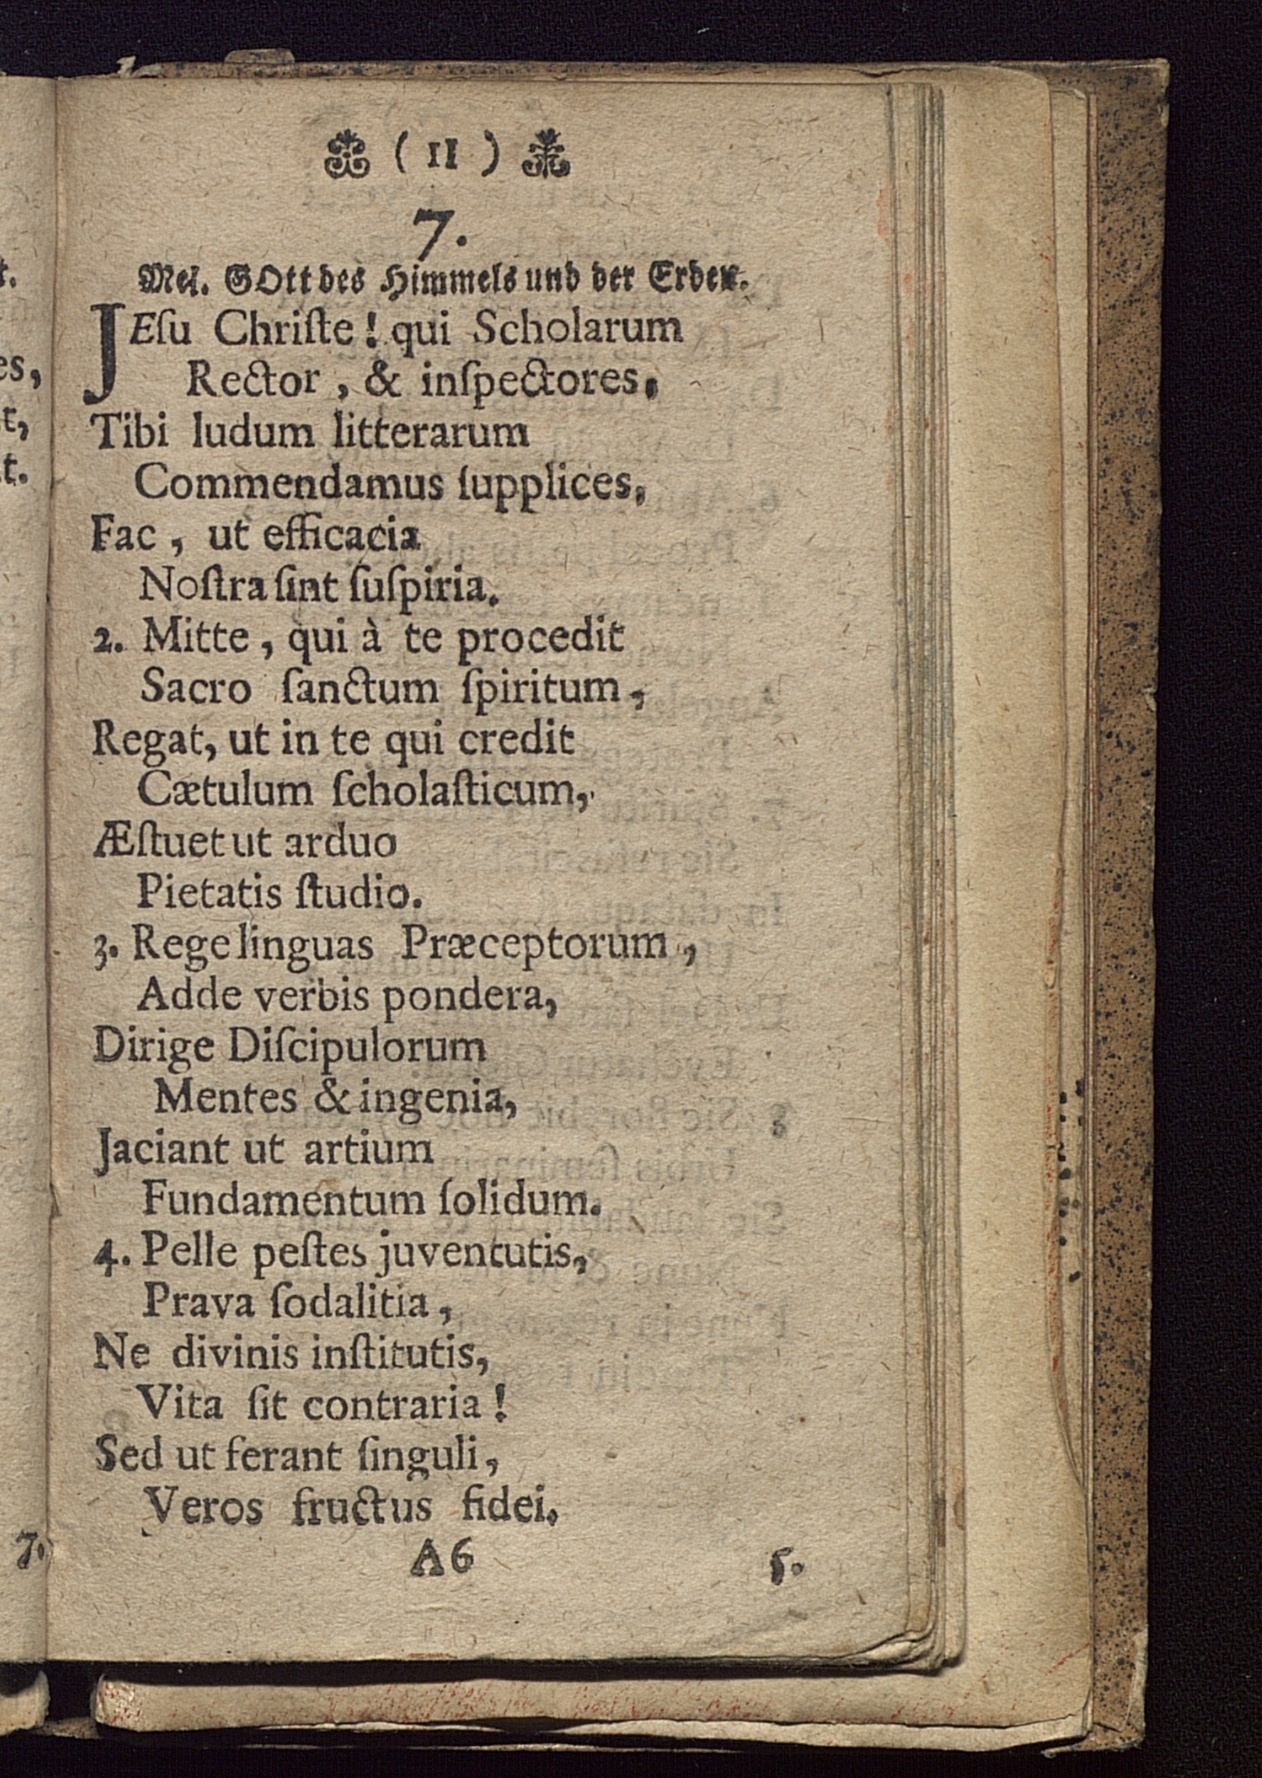 ( 11 )
7.
Mel. GOtt des Himmels und der Erden.
JEſu Chriſte! qui Scholarum
Rector, & inſpectores,
Tibi ludum litterarum
Commendamus ſupplices,
Fac, ut efficacia
Noſtra ſint ſuſpiria.
2. Mitte, qui à te procedit
Sacro ſanctum ſpiritum,
Regat, ut in te qui credit
Cætulum ſcholaſticum,
Æſtuet ut arduo
Pietatis ſtudio.
3. Rege linguas Præceptorum,
Adde verbis pondera,
Dirige Diſcipulorum
Mentes & ingenia,
Jaciant ut artium
Fundamentum ſolidum.
4. Pelle peſtes juventutis,
Prava ſodalitia,
Ne divinis inſtitutis,
Vita ſit contraria!
Sed ut ferant ſinguli,
Veros fructus fidei.
A6 5.
7.